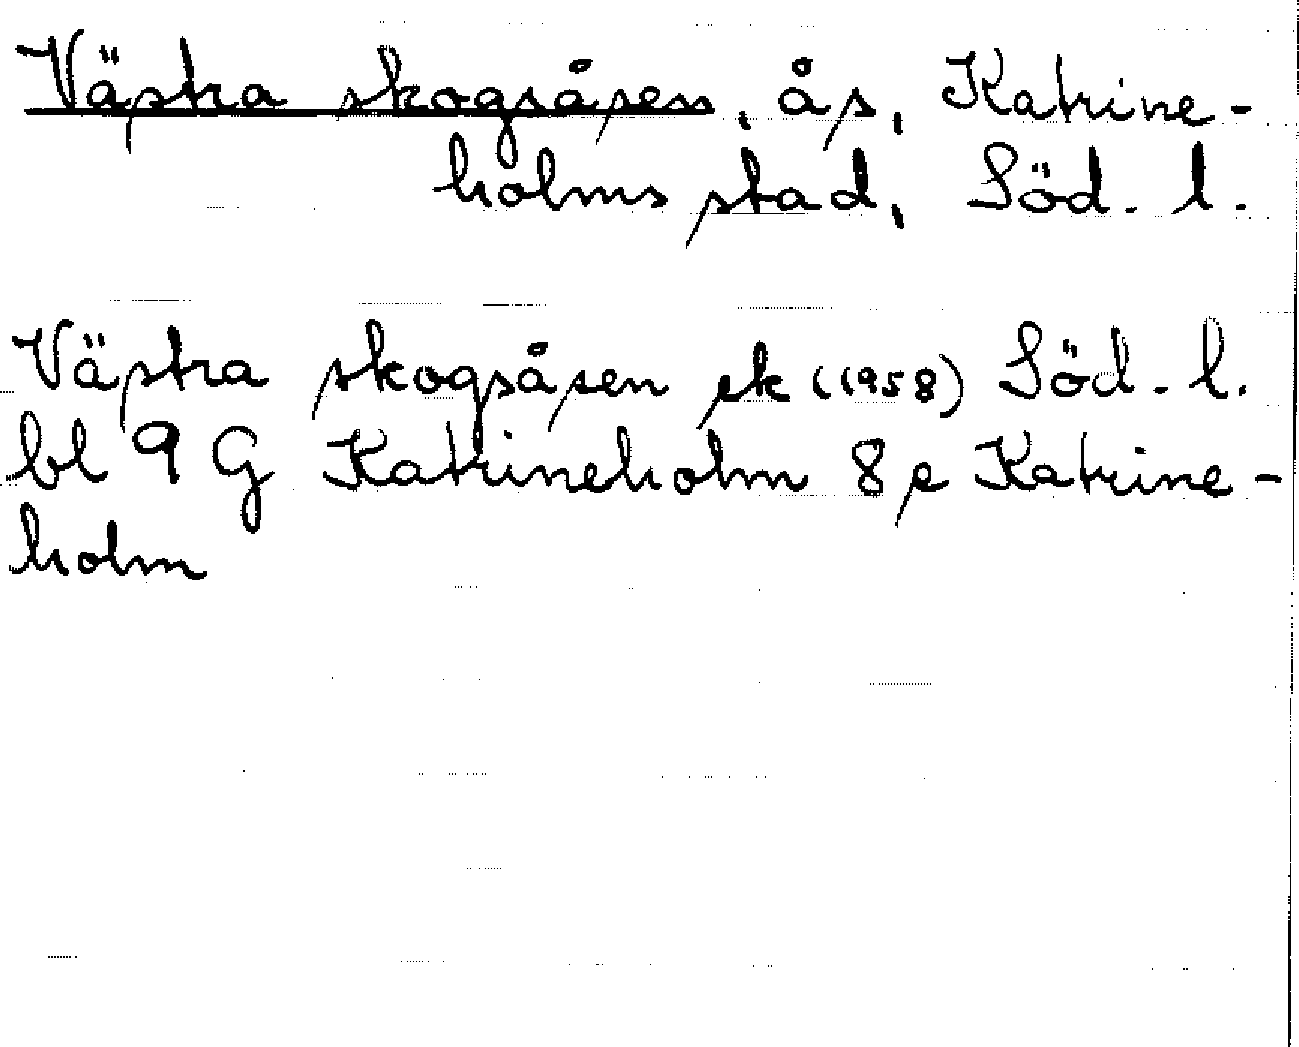 Västra skogsåsen, ås, Katrine-
holms stad, Söd. l.
Västra skogsåsen ek (1958) Söd. l.
bl 9 G Katrineholm 8 e Katrine-
holm